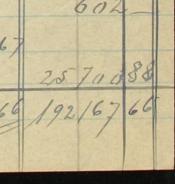 602
67
257008 88
66 192167 66